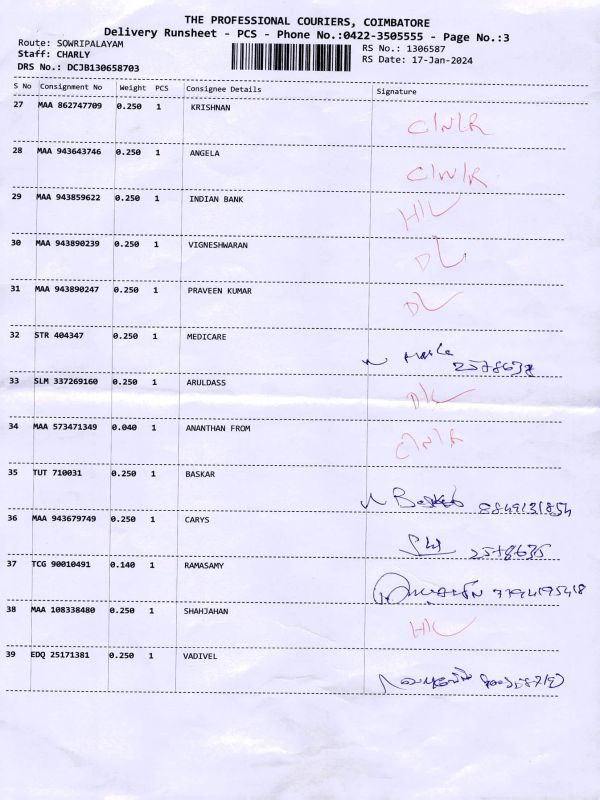 THE PROFESSIONAL COURIERS, COIMBATORE
Delivery Runsheet - PCS - Phone No.:0422-3505555 - Page No.:3
Route: SOWRIPALAYAM
Staff: CHARLY
DRS No.: DCJB130658703
RS No.: 1306587
RS Date: 17-Jan-2024
S No Consignment No Weight PCS Consignee Details Signature
27 MAA 862747709 0.250 1 KRISHNAN C/N/R
28 MAA 943643746 0.250 1 ANGELA C/N/R
29 MAA 943859622 0.250 1 INDIAN BANK
30 MAA 943890239 0.250 1 VIGNESHWARAN
31 MAA 943890247 0.250 1 PRAVEEN KUMAR
32 STR 404347 0.250 1 MEDICARE
33 SLM 337269160 0.250 1 ARULDASS
34 MAA 573471349 0.040 1 ANANTHAN FROM C/N/R
35 TUT 710031 0.250 1 BASKAR
36 MAA 943679749 0.250 1 CARYS 2578635
37 TCG 90010491 0.140 1 RAMASAMY
38 MAA 108338480 0.250 1 SHAHJAHAN
39 EDQ 25171381 0.250 1 VADIVEL